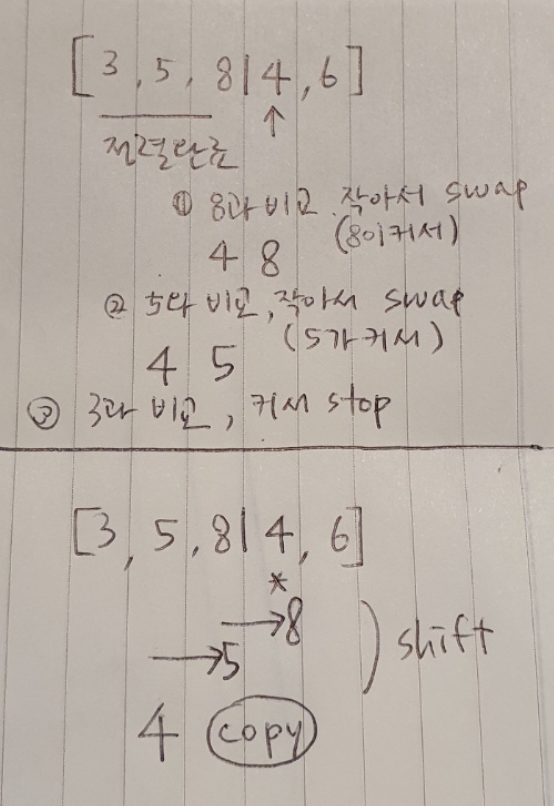 [3, 5, 8 | 4, 6]
↑
정렬완료
① 8과 비교, 작아서 swap
(8이 커서)
4 8
② 5와 비교, 작아서 swap
(5가 커서)
4 5
③ 3과 비교, 커서 stop
[3, 5, 8 | 4, 6]
*
→8
→5
) shift
4 copy